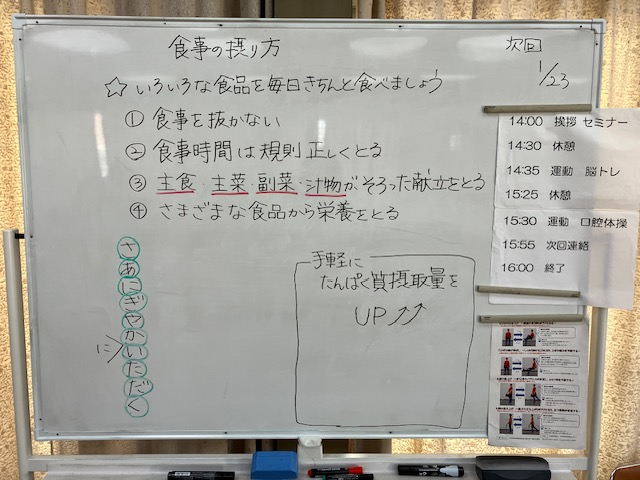 食事の摂り方
次回
1/23
☆いろいろな食品を毎日きちんと食べましょう
① 食事を抜かない
② 食事時間は規則正しくとる
③ 主食・主菜・副菜・汁物がそろった献立をとる
④ さまざまな食品から栄養をとる
さあにぎやかいただく
に
手軽に
たんぱく質摂取量を
UP↗↗
14:00 挨拶 セミナー
14:30 休憩
14:35 運動 脳トレ
15:25 休憩
15:30 運動 口腔体操
15:55 次回連絡
16:00 終了